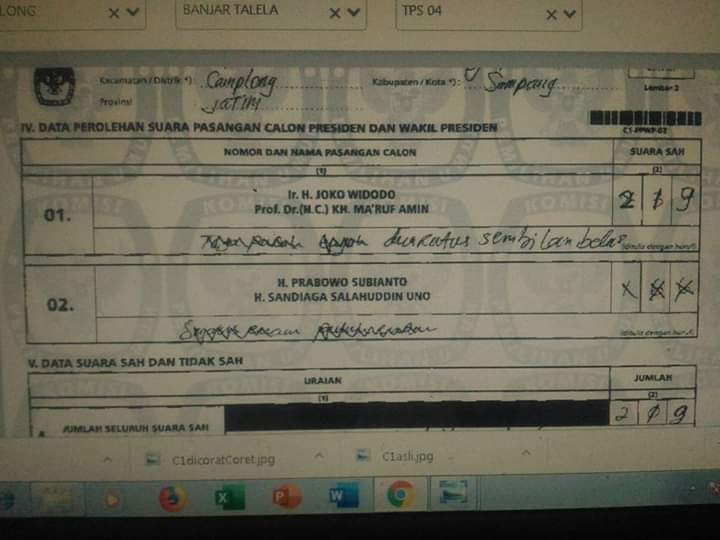 LONG
BANJAR TALELA
TPS 04
Kecamatan / Distrik *) : Camplong
Kabupaten / Kota *) : Sampang
Lembar 2
Provinsi JATIM
IV. DATA PEROLEHAN SUARA PASANGAN CALON PRESIDEN DAN WAKIL PRESIDEN
C1-PPWP-02
NOMOR DAN NAMA PASANGAN CALON
SUARA SAH
(1)
(2)
01.
Ir. H. JOKO WIDODO
Prof. Dr.(H.C.) KH. MA'RUF AMIN
2 1 9
dua ratus sembilan belas
(ditulis dengan huruf)
02.
H. PRABOWO SUBIANTO
H. SANDIAGA SALAHUDDIN UNO
X X X
(ditulis dengan huruf)
V. DATA SUARA SAH DAN TIDAK SAH
URAIAN
JUMLAH
(1)
(2)
JUMLAH SELURUH SUARA SAH
2 1 9
C1dicoratCoret.jpg
C1asli.jpg